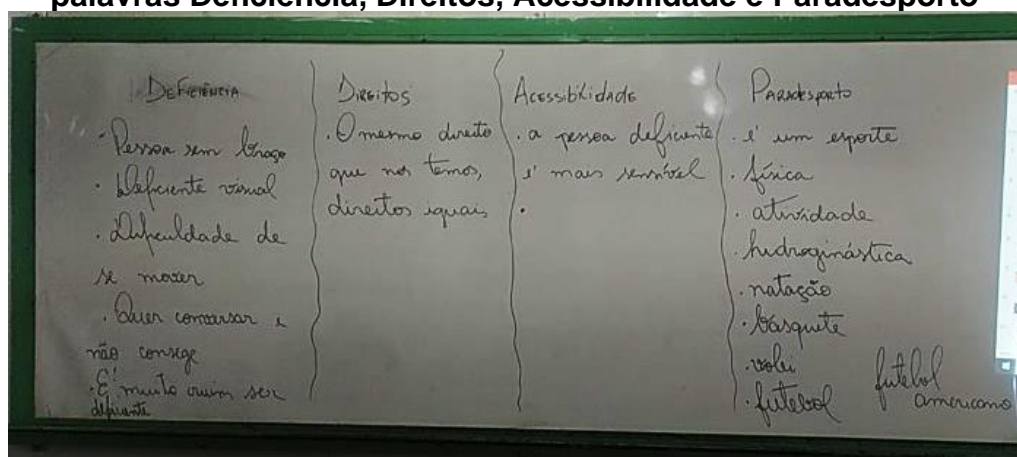 palavras Deficiência, Direitos, Acessibilidade e Paradesporto
DEFICIÊNCIA
· Pessoa sem braço
· Deficiente visual
· Dificuldade de
se mover
· Quer conversar e
não consege
· É muito ruim ser
deficiente
DIREITOS
· O mesmo direito
que nos temos,
direitos iguais
ACESSIBILIDADE
· a pessoa deficiente
é mais sensível
·
PARADESPORTO
· é um esporte
· física
· atividade
· hidroginástica
· natação
· basquete
· volei
· futebol
futebol
americano